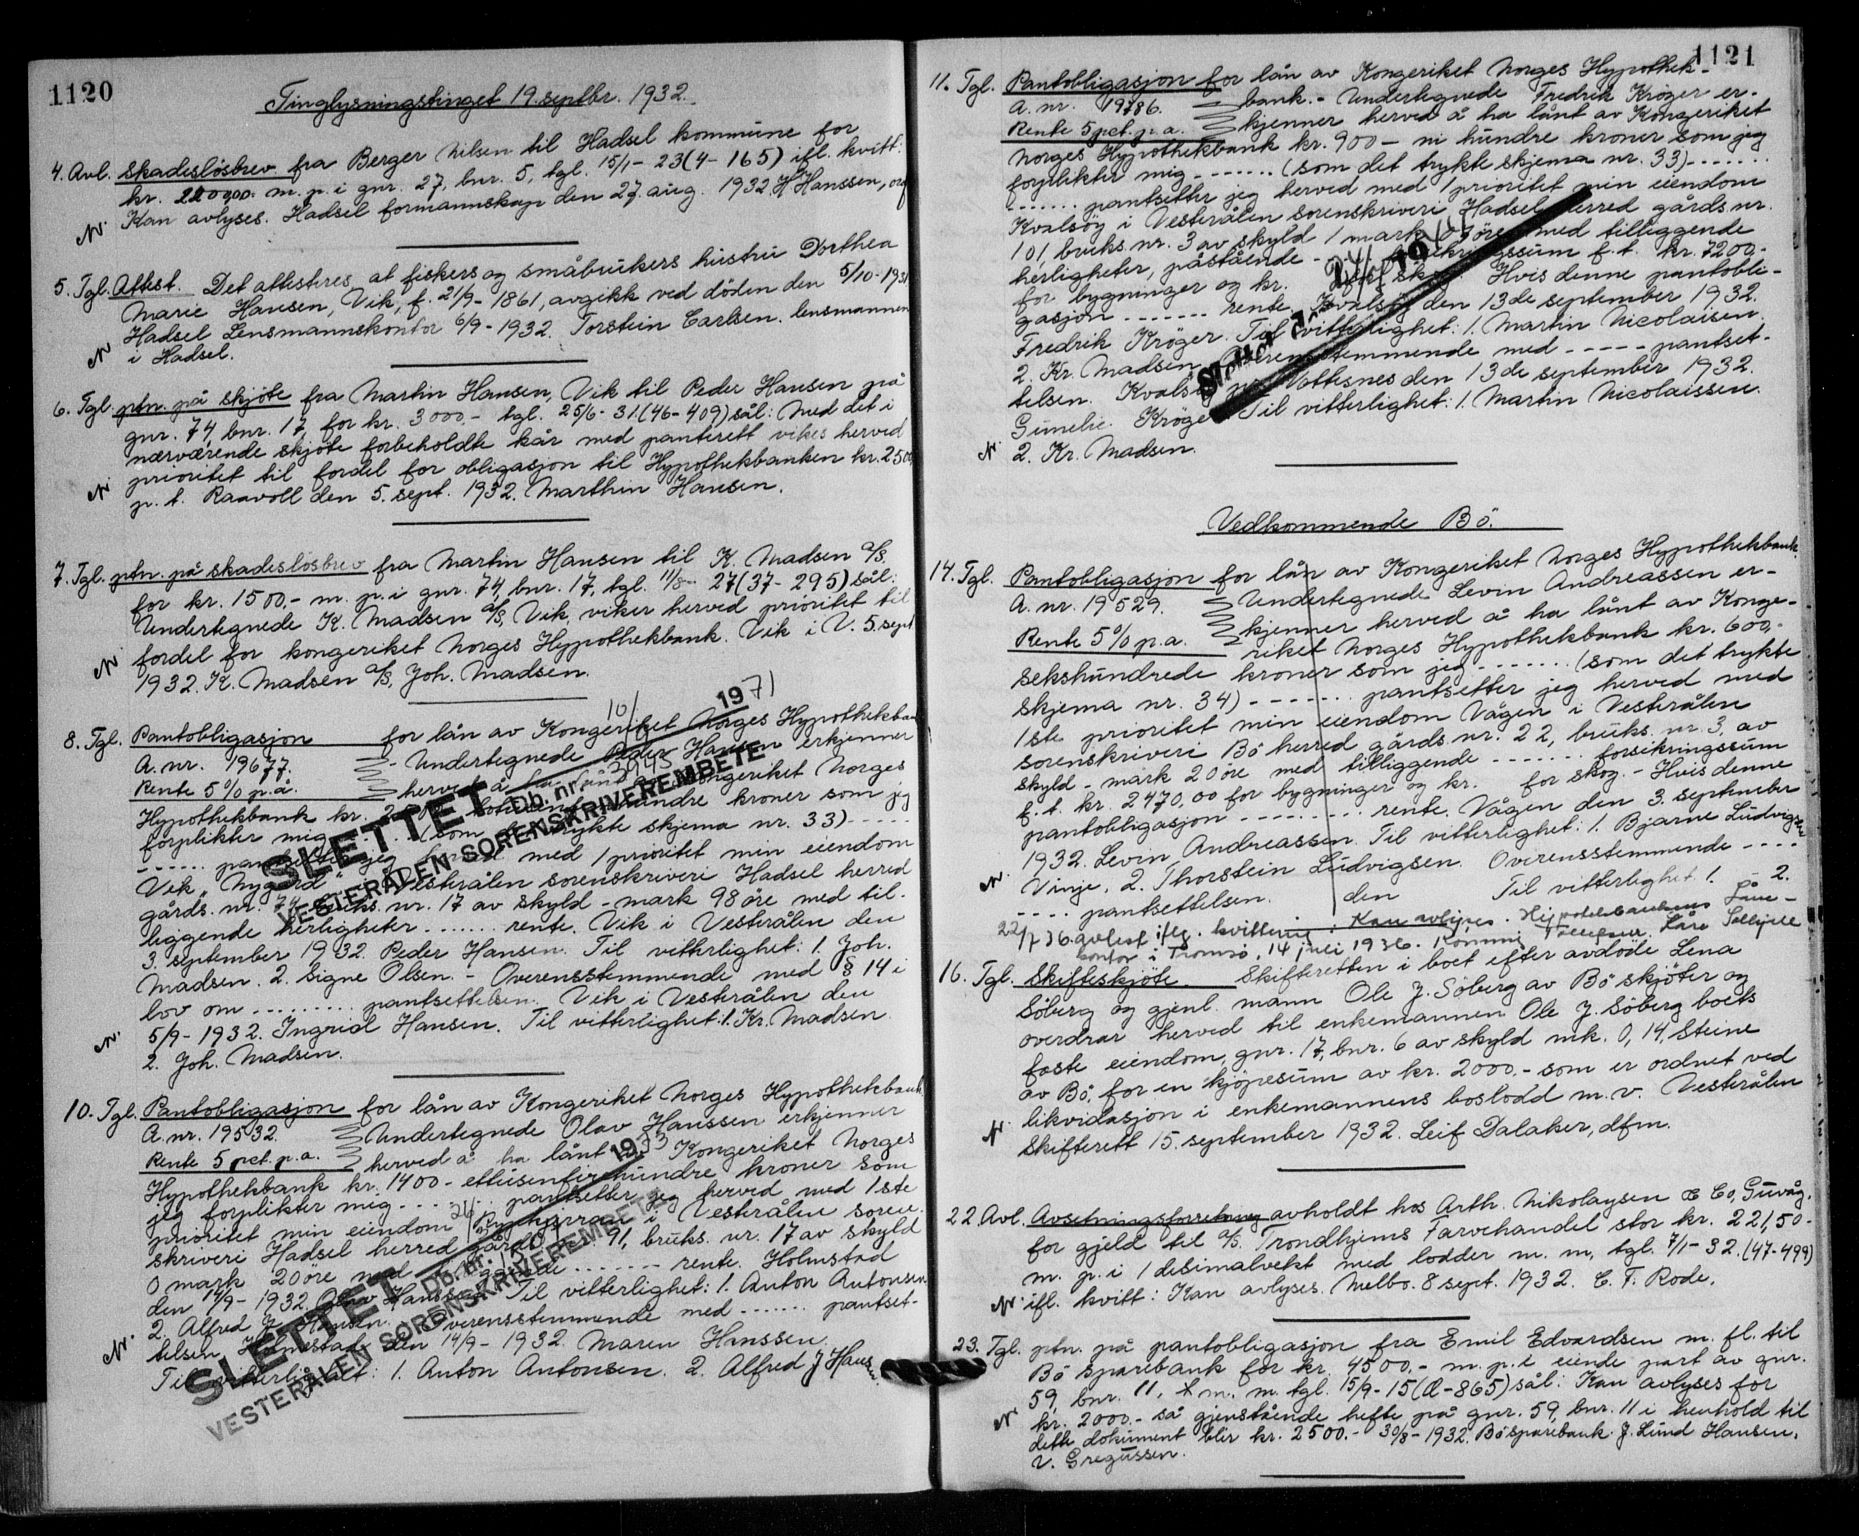 1120
Tinglysningstinget 19. septbr. 1932.
4. Avl. Skadeslösbrev fra Berger Nilsen til Hadsel kommune for
kr. m. p. i gnr. 27, bnr. 5, tgl. 15/1-23 (4-165) ifl. kvitt:
Kan avlyses. Hadsel formannskap den 27. aug. 1932 H Hanssen, ordf
5. Tgl. Attest. Det attesteres at fiskers og småbrukers hustru Dorthea
Marie Hansen, Vik, f. 21/9-1861, avgikk ved döden den 5/10-1931
Hadsel Lensmannskontor 6/9-1932. Torstein Carlsen. lensmannen
i Hadsel.
6. Tgl. ptn. på skjöte fra Martin Hansen, Vik til Peder Hansen på
gnr. 74, bnr. 17, for kr. 3000.- tgl. 25/6-31 (46-409) sål: Med det i
nærværende skjöte forbeholdte kår med panterett vikes herved
prioritet til fordel for obligasjon til Hypothekbanken kr. 2500
p. t. Raavoll den 5. sept. 1932. Marthin Hansen.
7. Tgl. ptn. på skadeslösbrev fra Martin Hansen til K. Madsen A/S
for kr. 1500.- m. p. i gnr. 74, bnr. 17, tgl. 11/8-27 (37-295) sål:
Undertegnede K. Madsen A/S, Vik, viker herved prioritet til
fordel for kongeriket Norges Hypothekbank. Vik i V. 5. sept
1932. K. Madsen A/S, Joh. Madsen.
8. Tgl. Pantobligasjon for lån av Kongeriket Norges Hypothekbank
A. nr. 19677. - Undertegnede Peder Hansen erkjenner
Rente 5% p.a. herved å Kongeriket Norges
Hypothekbank kr. hundre kroner som jeg
forplikter mig (som det trykte skjema nr. 33) -----
----- pantsetter jeg herved med 1 prioritet min eiendom
Vik "Nygård" i Vesterålen sorenskriveri Hadsel herred
gårds. nr. 74 bruks. nr. 17 av skyld - mark 98 öre med til-
liggende herligheter ....... rente. Vik i Vesterålen den
3. september 1932. Peder Hansen. Til vitterlighet: 1. Joh.
Madsen. 2. Signe Olsen. - Overensstemmende med § 14 i
lov om ......... pantsettelsen. Vik i Vesterålen den
5/9-1932. Ingrid Hansen. Til vitterlighet: 1. Kr. Madsen
2. Joh. Madsen.
10/ 1971
SLETTET Db. nr. 2045
VESTERÅLEN SORENSKRIVEREMBETE
10. Tgl. Pantobligasjon for lån av Kongeriket Norges Hypothekbank
A. nr. 19532. Undertegnede Olav Hanssen erkjenner
Rente 5 pct. p.a. herved å ha lånt Kongeriket Norges
Hypothekbank kr. 1400 - ettusenfirehundre kroner som
jeg forplikter mig ... pantsetter jeg herved med 1ste
prioritet min eiendom i Vesterålen soren-
skriveri Hadsel herred gårds nr. 91, bruks. nr. 17 av skyld
0 mark 20 öre med tilliggende ....... rente. Holmstad
den 14/9-1932. Olav Hanssen. Til vitterlighet: 1. Anton Antonsen.
2. Alfred J. Hansen. Overensstemmende med ....... pantset-
telsen. Holmstad den 14/9-1932. Maren Hanssen.
Til vitterlighet: 1. Anton Antonsen. 2. Alfred J Hans
SLETTET Db. nr.
VESTERÅLEN SORENSKRIVEREMBETE
1121
11. Tgl. Pantobligasjon for lån av Kongeriket Norges Hypothek-
A. nr. 19786. bank. - Undertegnede Fredrik Kröger er-
Rente 5 pct. p. a. kjenner herved å ha lånt av Kongeriket
Norges Hypothekbank kr. 900 - ni hundre kroner som jeg
forplikter mig ------ (som det trykte skjema nr. 33) -------
------ pantsetter jeg herved med 1 prioritet min eiendom
Kvalsöy i Vesterålen sorenskriveri Hadsel herred gårds. nr.
101, bruks. nr. 3 av skyld 1 mark öre med tilliggende
herligheter, påstående - forsikringssum f. t. kr. 7200.-
for bygninger og kr. for skog. Hvis denne pantobli-
gasjon ------- rente. Kvalsöy den 13de september 1932.
Fredrik Kröger. Til vitterlighet: 1. Martin Nicolaisen
2. Kr. Madsen. Overensstemmende med ----- pantset-
telsen. Kvalsöy pr. Vottesnes den 13de september 1932.
Gunelie Kröger Til vitterlighet: 1. Martin Nicolaissen.
2. Kr. Madsen.
Vedkommende Bö.
14. Tgl. Pantobligasjon for lån av Kongeriket Norges Hypothekbank
A. nr. 19529. Undertegnede Levin Andreassen er-
Rente 5% p. a. kjenner herved å ha lånt av Konge-
riket Norges Hypothekbank kr. 600,-
sekshundrede kroner som jeg ------- (som det trykte
skjema nr. 34) ------ pantsetter jeg herved med
1ste prioritet min eiendom Vågen i Vesterålen
sorenskriveri Bö herred gårds. nr. 22, bruks. nr. 3, av
skyld - mark 20 öre med tilliggende ....... forsikringssum
f. t. kr. 2470,00 for bygninger og kr. for skog. - Hvis denne
pantobligasjon --------- rente. Vågen den 3. september
1932. Levin Andreassen. Til vitterlighet: 1. Bjarne Ludvigsen
Vinje. 2. Thorstein Ludvigsen. Overensstemmende ----
---- pantsettelsen. den Til vitterlighet 1. - 2.
22/7 36 avlest iflg. kvittering: Kan avlyses. Hypotekbankens Låne-
kontor i Tromsö, 14 juli 1936. Tollefsen. Kåre
16. Tgl. Skifteskjöte. Skifteretten i boet efter avdöde Lena
Söberg og gjenl. mann Ole J. Söberg av Bö skjöter og
overdrar herved til enkemannen Ole J. Söberg boets
faste eiendom, gnr. 17, bnr. 6 av skyld mk. 0,14, Steine
av Bö, for en kjöpesum av kr. 2000.- som er ordnet ved
likvidasjon i enkemannens boslodd m. v. Vesterålen
Skifterett 15. september 1932. Leif Dalaker, dfm.
22 Avl. Avsetningsforretning avholdt hos Arth. Nikolaysen & Co, Guvåg,
for gjeld til A/S Trondhjems Farvehandel stor kr. 221,50.-
m. p. i 1 desimalvekt med lodder m. m, tgl. 7/1-32. (47-499)
ifl. kvitt: Kan avlyses. Melbo. 8 sept. 1932. C. F. Rode.
23. Tgl. ptn. på pantobligasjon fra Emil Edvardsen m. fl. til
Bö Sparebank for kr. 4500.- m. p. i eiende part av gnr.
59, bnr. 11, m. m. tgl. 15/9-15 (Q-865) sål: Kan avlyses for
kr. 2000.- så gjenstående hefte på gnr. 59, bnr. 11 i henhold til
dette dokument blir kr. 2500.- 30/8-1932. Bö sparebank. J. Lund Hansen.
V. Gregussen.